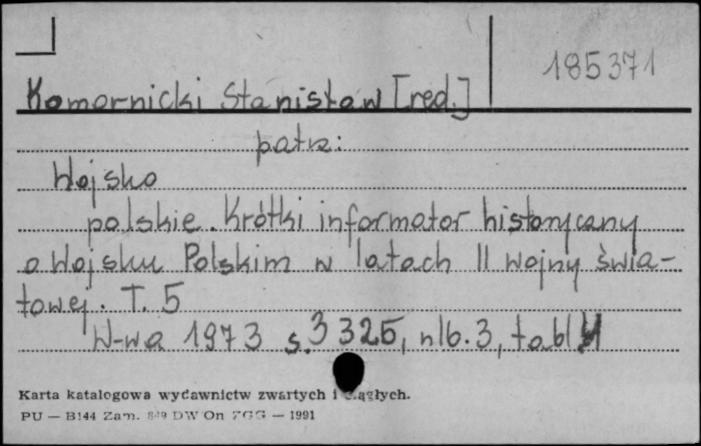 185371
Komornicki Stanisław [red.]
patrz:
Wojsko
polskie. Krótki informator historyczny
o Wojsku Polskim w latach II wojny świa-
towej. T. 5
W-wa 1973 s. 325, nlb. 3, tabl
Karta katalogowa wydawnictw zwartych i ciągłych.
PU — B144 Zam. DW On — 1991